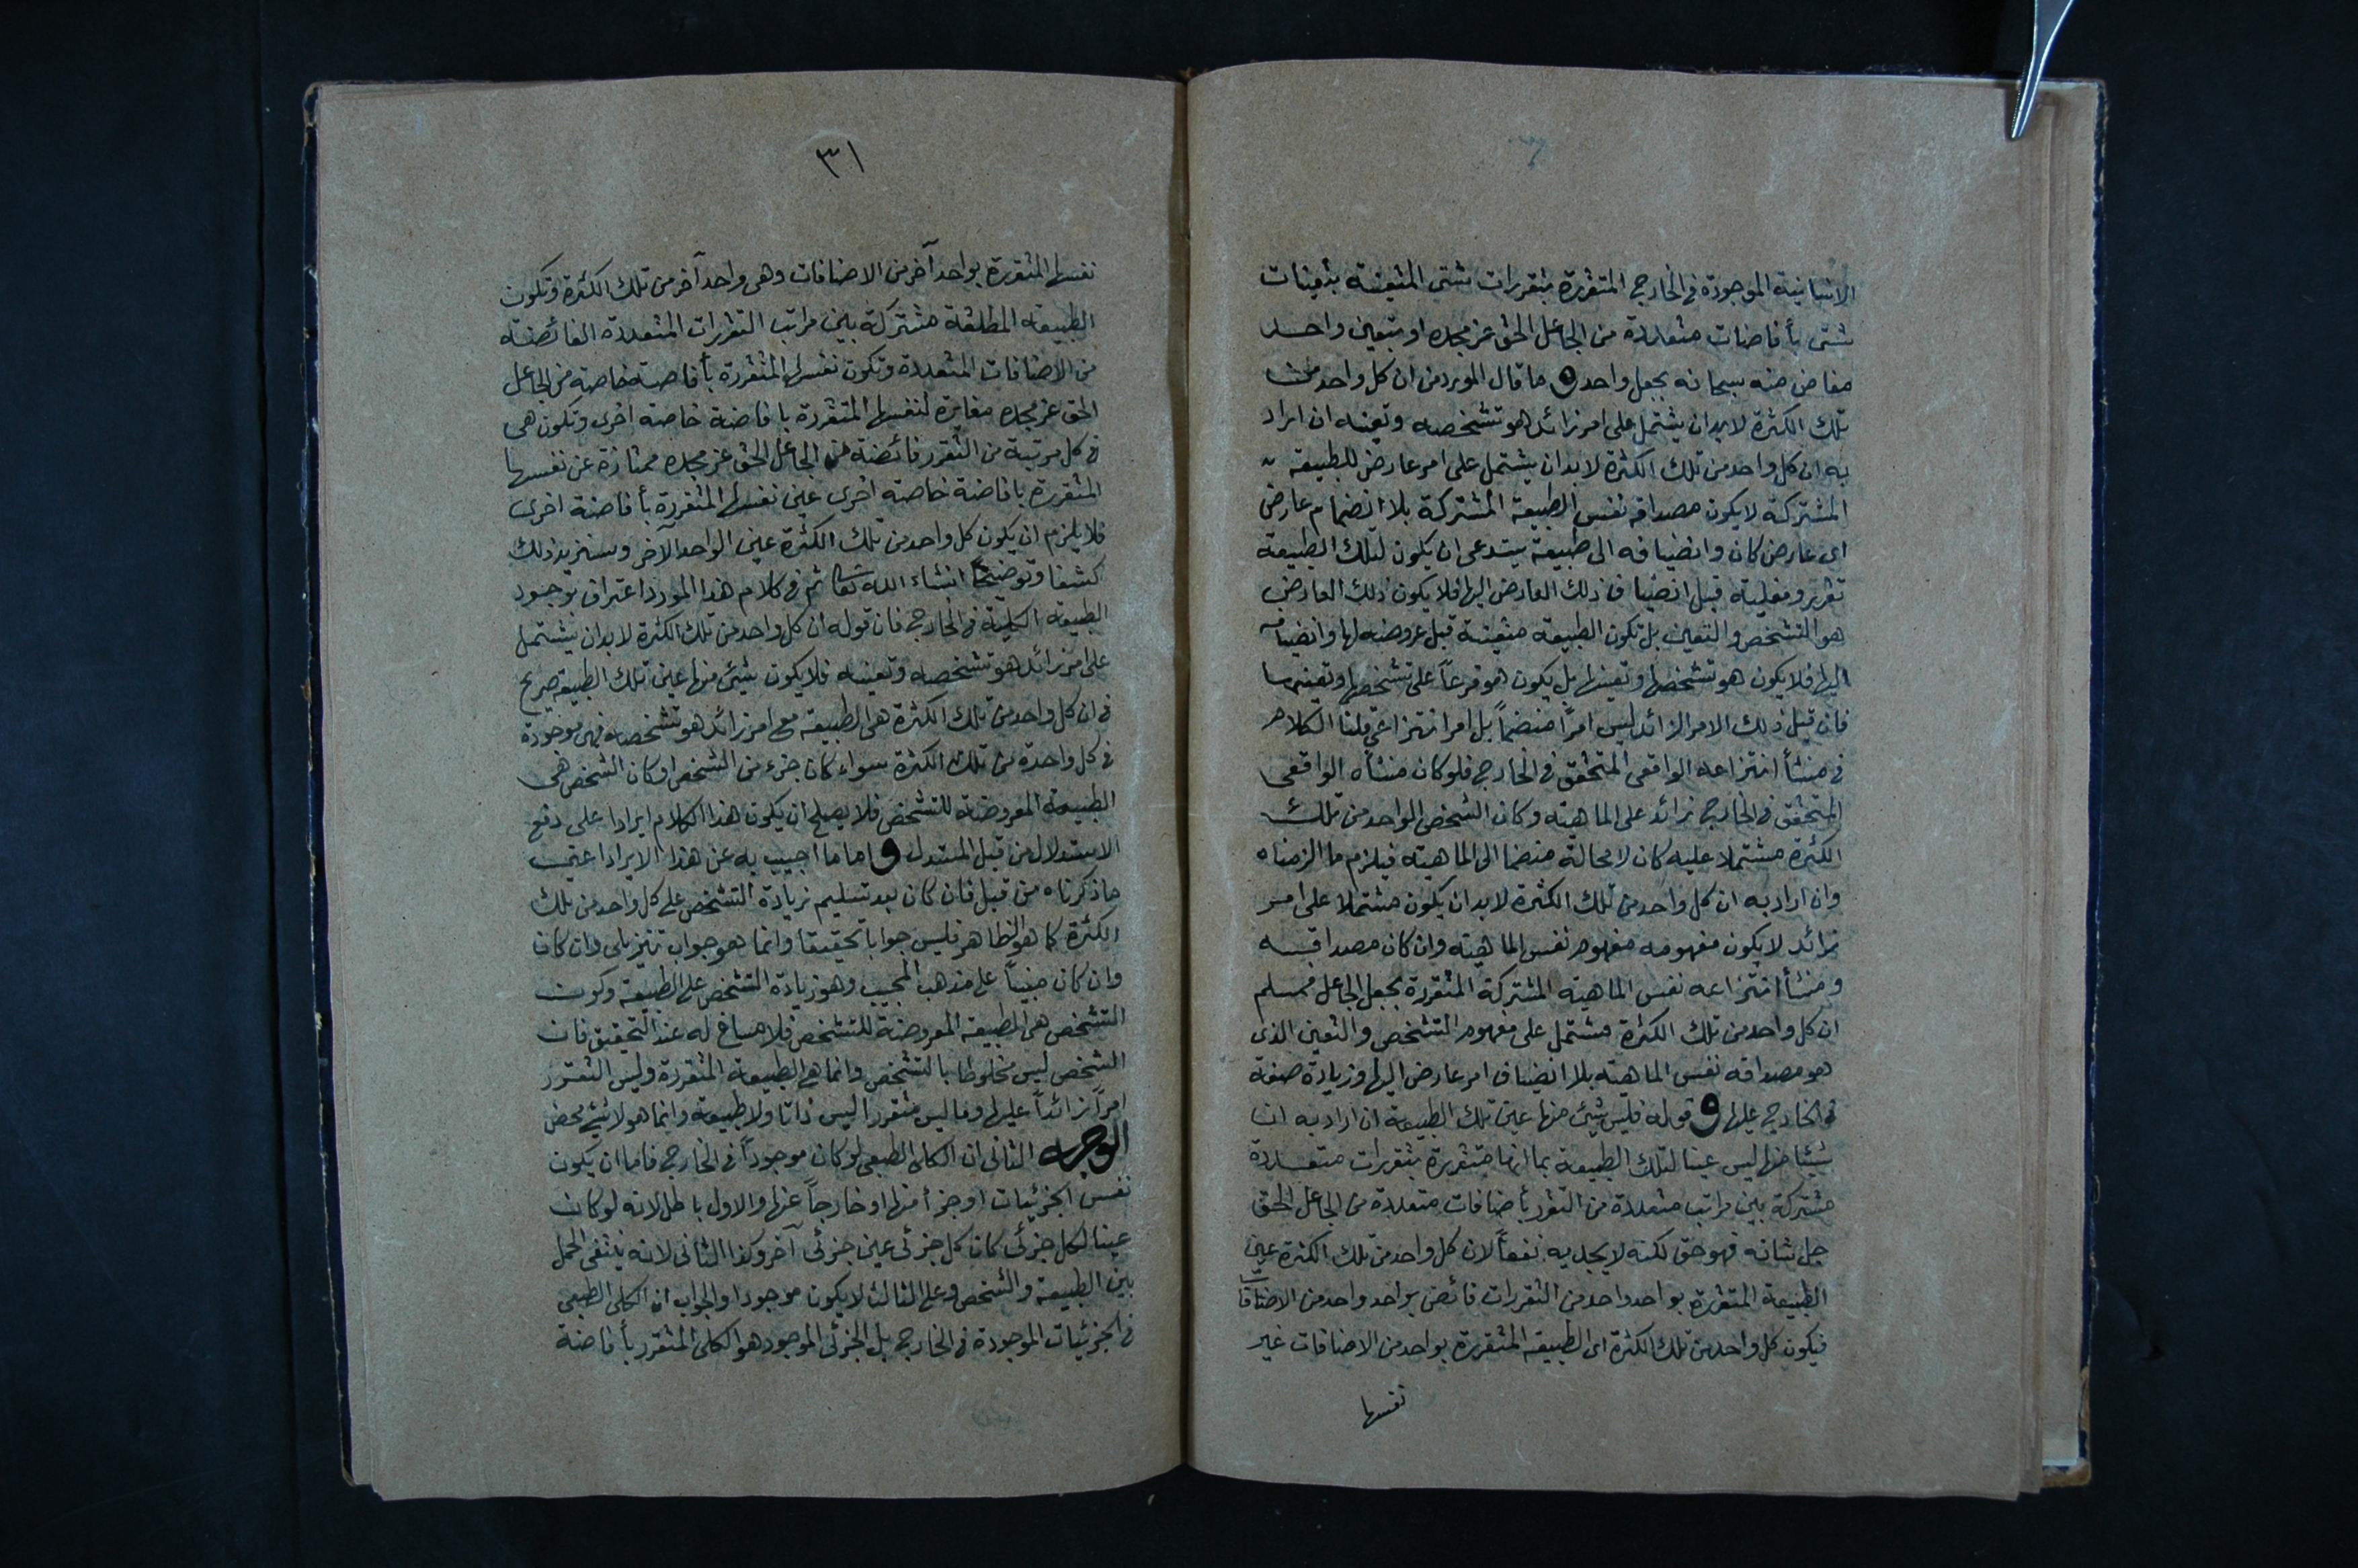 الانسانية الموجودة فى الخارج المتقررة بتقررات شتى المتعينة بتعينات
شتى بأفاضات متعددة من الجاعل الحق عز مجده او بتعين واحد
مفاض منه سبحانه بجعل واحد و ما قال المورد من ان كل واحد من
تلك الكثرة لابد ان يشتمل على امر زائد هو تشخصه وتعينه ان اراد
به ان كل واحد من تلك الكثرة لابد ان يشتمل على امر عارض للطبيعة
المشتركة لا يكون مصداقه نفس الطبيعة المشتركة بلا انضمام عارض
اى عارض كان وانضيافه الى طبيعة يستدعى ان يكون لتلك الطبيعة
تقرر وفعلية قبل انضياف ذلك العارض اليها فلا يكون ذلك العارض
هو التشخص والتعين بل تكون الطبيعة متعينة قبل عروضه لها وانضيافه
اليها فلا يكون هو تشخصها وتعينها بل يكون هو فرعاً على تشخصها وتعينها
فان قيل ذلك الامر الزائد ليس امراً منضماً بل امر انتزاعى قلنا الكلام
فى منشأ انتزاعه الواقعى المتحقق فى الخارج فلو كان منشأه الواقعى
المتحقق فى الخارج زائد على الماهية وكان الشخص الواحد من تلك
الكثرة مشتملا عليه كان لا محالة منضما الى الماهية فيلزم ما الزمناه
وان اراد به ان كل واحد من تلك الكثرة لابد ان يكون مشتملا على امر
زائد لا يكون مفهومه مفهوم نفس الماهية وان كان مصداقه
ومنشأ انتزاعه نفس الماهية المشتركة المتقررة بجعل الجاعل فمسلم
ان كل واحد من تلك الكثرة مشتمل على مفهوم التشخص والتعين الذى
هو مصداقه نفس الماهية بلا انضياف امر عارض اليها وزيادة صفة
فى الخارج عليها و قوله فليس شئ منها عين تلك الطبيعة ان اراد به ان
شيئا منها ليس عينا لتلك الطبيعة بما انها متقررة بتقررات متعددة
مشتركة بين مراتب متعددة من التقرر بأضافات متعددة من الجاعل الحق
جل شانه فهو حق لكنه لا يجديه نفعاً لان كل واحد من تلك الكثرة عين
الطبيعة المتقررة بواحد واحد من التقررات فائض بواحد واحد من الاضافات
فيكون كل واحد من تلك الكثرة اى الطبيعة المتقررة بواحد من الاضافات غير
نفسها
٣١
نفسها المتقررة بواحد آخر من الاضافات وهى واحد آخر من تلك الكثرة وتكون
الطبيعة المطلقة مشتركة بين مراتب التقررات المتعددة الفائضة
من الاضافات المتعددة وتكون نفسها المتقررة بأفاضة خاصة من الجاعل
الحق عز مجده مغايرة لنفسها المتقررة بافاضة خاصة اخرى وتكون هى
فى كل مرتبة من التقرر فائضة من الجاعل الحق عز مجده ممتازة عن نفسها
المتقررة بافاضة خاصة اخرى عين نفسها المتقررة بأفاضة اخرى
فلا يلزم ان يكون كل واحد من تلك الكثرة عين الواحد الآخر وسنزيد ذلك
كشفا وتوضيحاً انشاء الله تعا ثم فى كلام هذا المورد اعتراف بوجود
الطبيعة الكلية فى الخارج فان قوله ان كل واحد من تلك الكثرة لابد ان يشتمل
على امر زائد هو تشخصه وتعينه فلا يكون شئ منها عين تلك الطبيعة صريح
فى ان كل واحد من تلك الكثرة هى الطبيعة مع امر زائد هو تشخصه فهى موجودة
فى كل واحدة من تلك الكثرة سواء كان جزء من الشخص او كان الشخص هى
الطبيعة المعروضة للتشخص فلا يصلح ان يكون هذا الكلام ايرادا على دفع
الاستدلال من قبل المستدل و اما ما اجيب به عن هذا الايراد اعنى
ما ذكرناه من قبل فان كان بعد تسليم زيادة التشخص على كل واحد من تلك
الكثرة كما هو الظاهر فليس جوابا تحقيقا وانما هو جواب تنزيلى وان كان
وان كان مبنياً على مذهب المجيب وهو زيادة التشخص على الطبيعة وكون
التشخص هى الطبيعة المعروضة للتشخص فلا مساغ له عند التحقيق فان
الشخص ليس مخلوطا بالتشخص وانما هى الطبيعة المتقررة وليس التقرر
امراً زائداً عليها وما ليس متقررا ليس ذاتا ولا طبيعة وانما هو لا شئ محض
الوجه الثانى ان الكلى الطبعى لو كان موجوداً فى الخارج فاما ان يكون
نفس الجزئيات او جزأ منها او خارجاً عنها والاول باطل لانه لو كان
عينا لكل جزئى كان كل جزئى عين جزئى آخر وكذا الثانى لانه ينتفى الحمل
بين الطبيعة والشخص وعلى الثالث لا يكون موجودا والجواب ان الكلى الطبعى
فى الجزئيات الموجودة فى الخارج بل الجزئى الموجود هو الكلى المتقرر بأفاضة